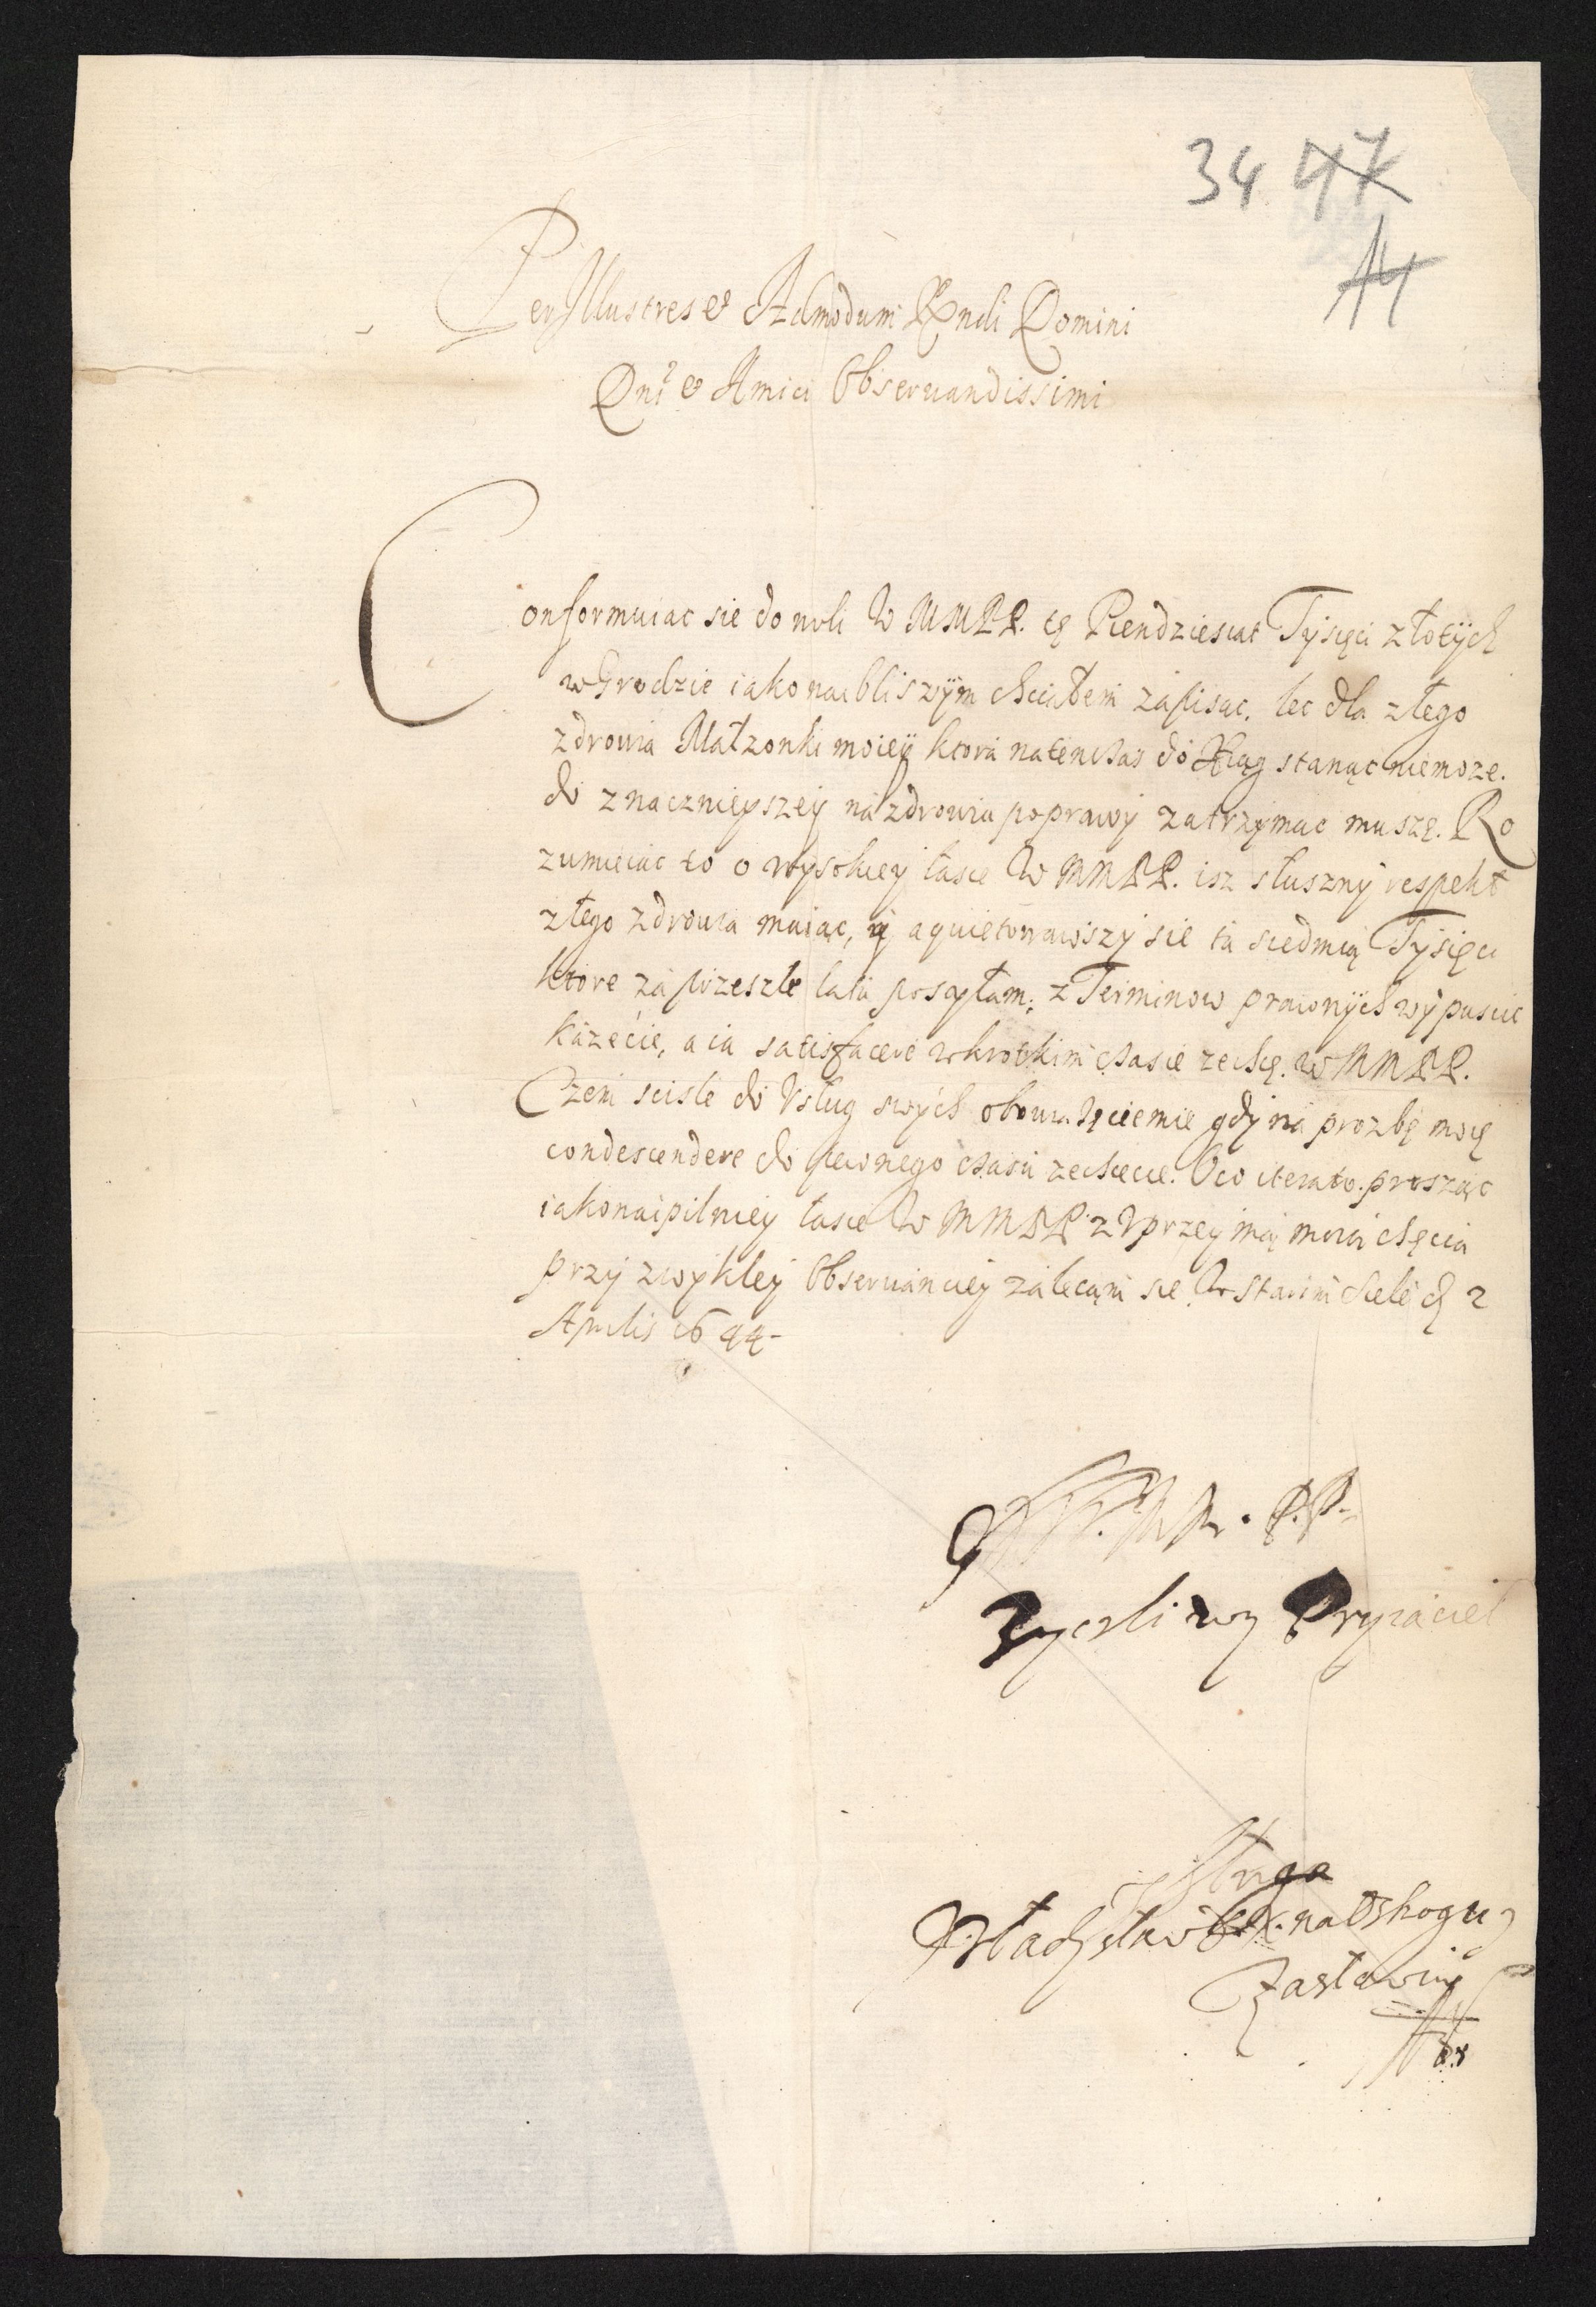 34 47
14
PerIllustres et Admodum Rndi Domini
Dni et Amici Observandissimi
Conformuiac sie do woli W MMPP. tę Piendziesiat Tysięci złotÿch
w Grodzie iako naibliszÿm chciałem zapisac, lec dla złego
zdrowia Małzonki moieÿ ktora natenczas do Xiąg stanąc niemoze.
do znacznieyszey na zdrowiu poprawy zatrzymac muszę. Ro
zumieiąc to o wysokiey łasce W MMPP. isz słuszny respekt
złego zdrowia maiąc, y aquietowawszy sie tą siedmią Tysięcy
ktore za przeszłe lata posyłam; z Terminow prawnÿch wypuscic
kazecie, a ia satisfacere w krotkim czasie zechcę. W MMPP.
Czem scisle do Vsług swych obowiązecie mie gdy na prozbę moię
condescendere do pewnego czasu zechcecie. Oco iterato. prosząc
iako naipilniey łasce W MMPP. z Vprzeymą moią chęcia
przy zwykłey Observanciey zalecam sie. W Starim Siele d 2
Aprilis 1644-
W. M M. P.P.
Zyczliwy Pryiaciel
y Sługa
Władysław X. na Ostrogu y
Zasławiu